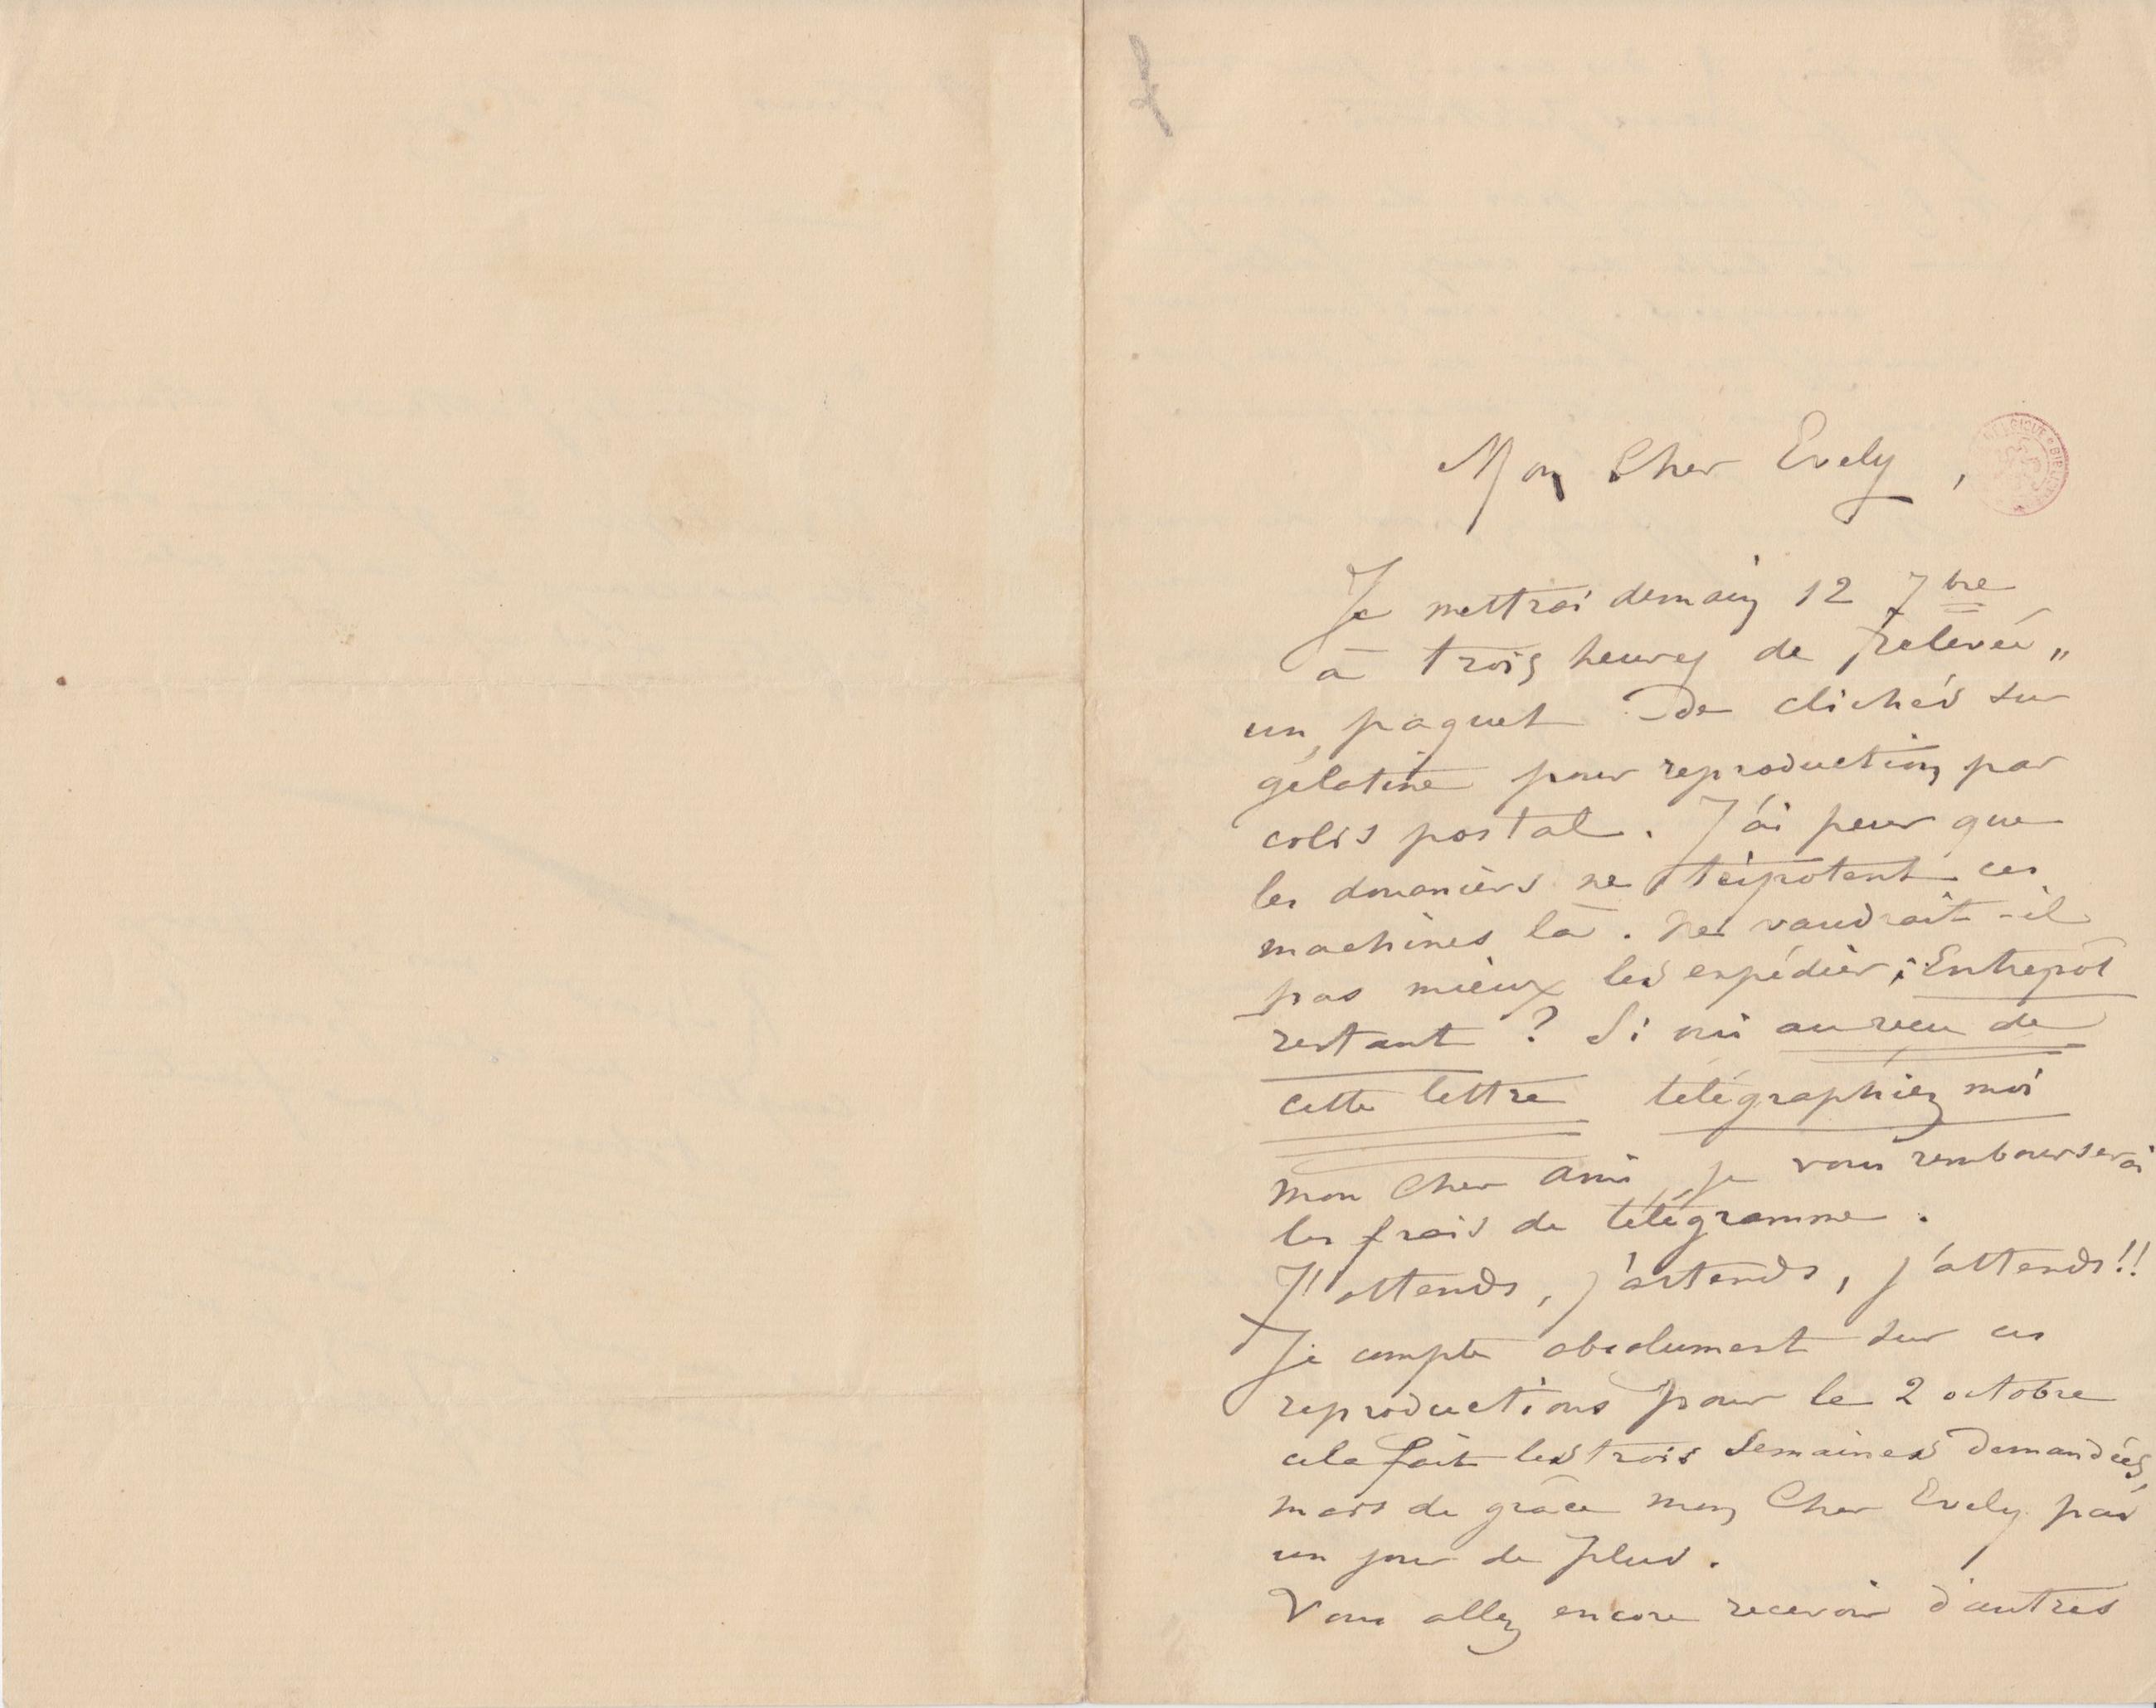 Mon Cher Evely,
Je mettrai demain 12 7bre
à trois heures de relevée „
un paquet de clichés sur
gélatine pour reproduction par
colis postal. J'ai peur que
les douaniers ne tripotent ces
machines là. Ne vaudrait-il
pas mieux les expédier : Entrepôt
restant ? Si oui au reçu de
cette lettre télégraphiez moi
mon Cher ami, je vous rembourserai
les frais de télégramme.
J'attends, j'attends, j'attends!!
Je compte absolument sur ces
reproductions pour le 2 octobre
cela fait les trois semaines demandées,
mais de grâce mon Cher Evely pas
un jour de plus.
Vous allez encore recevoir d'autres